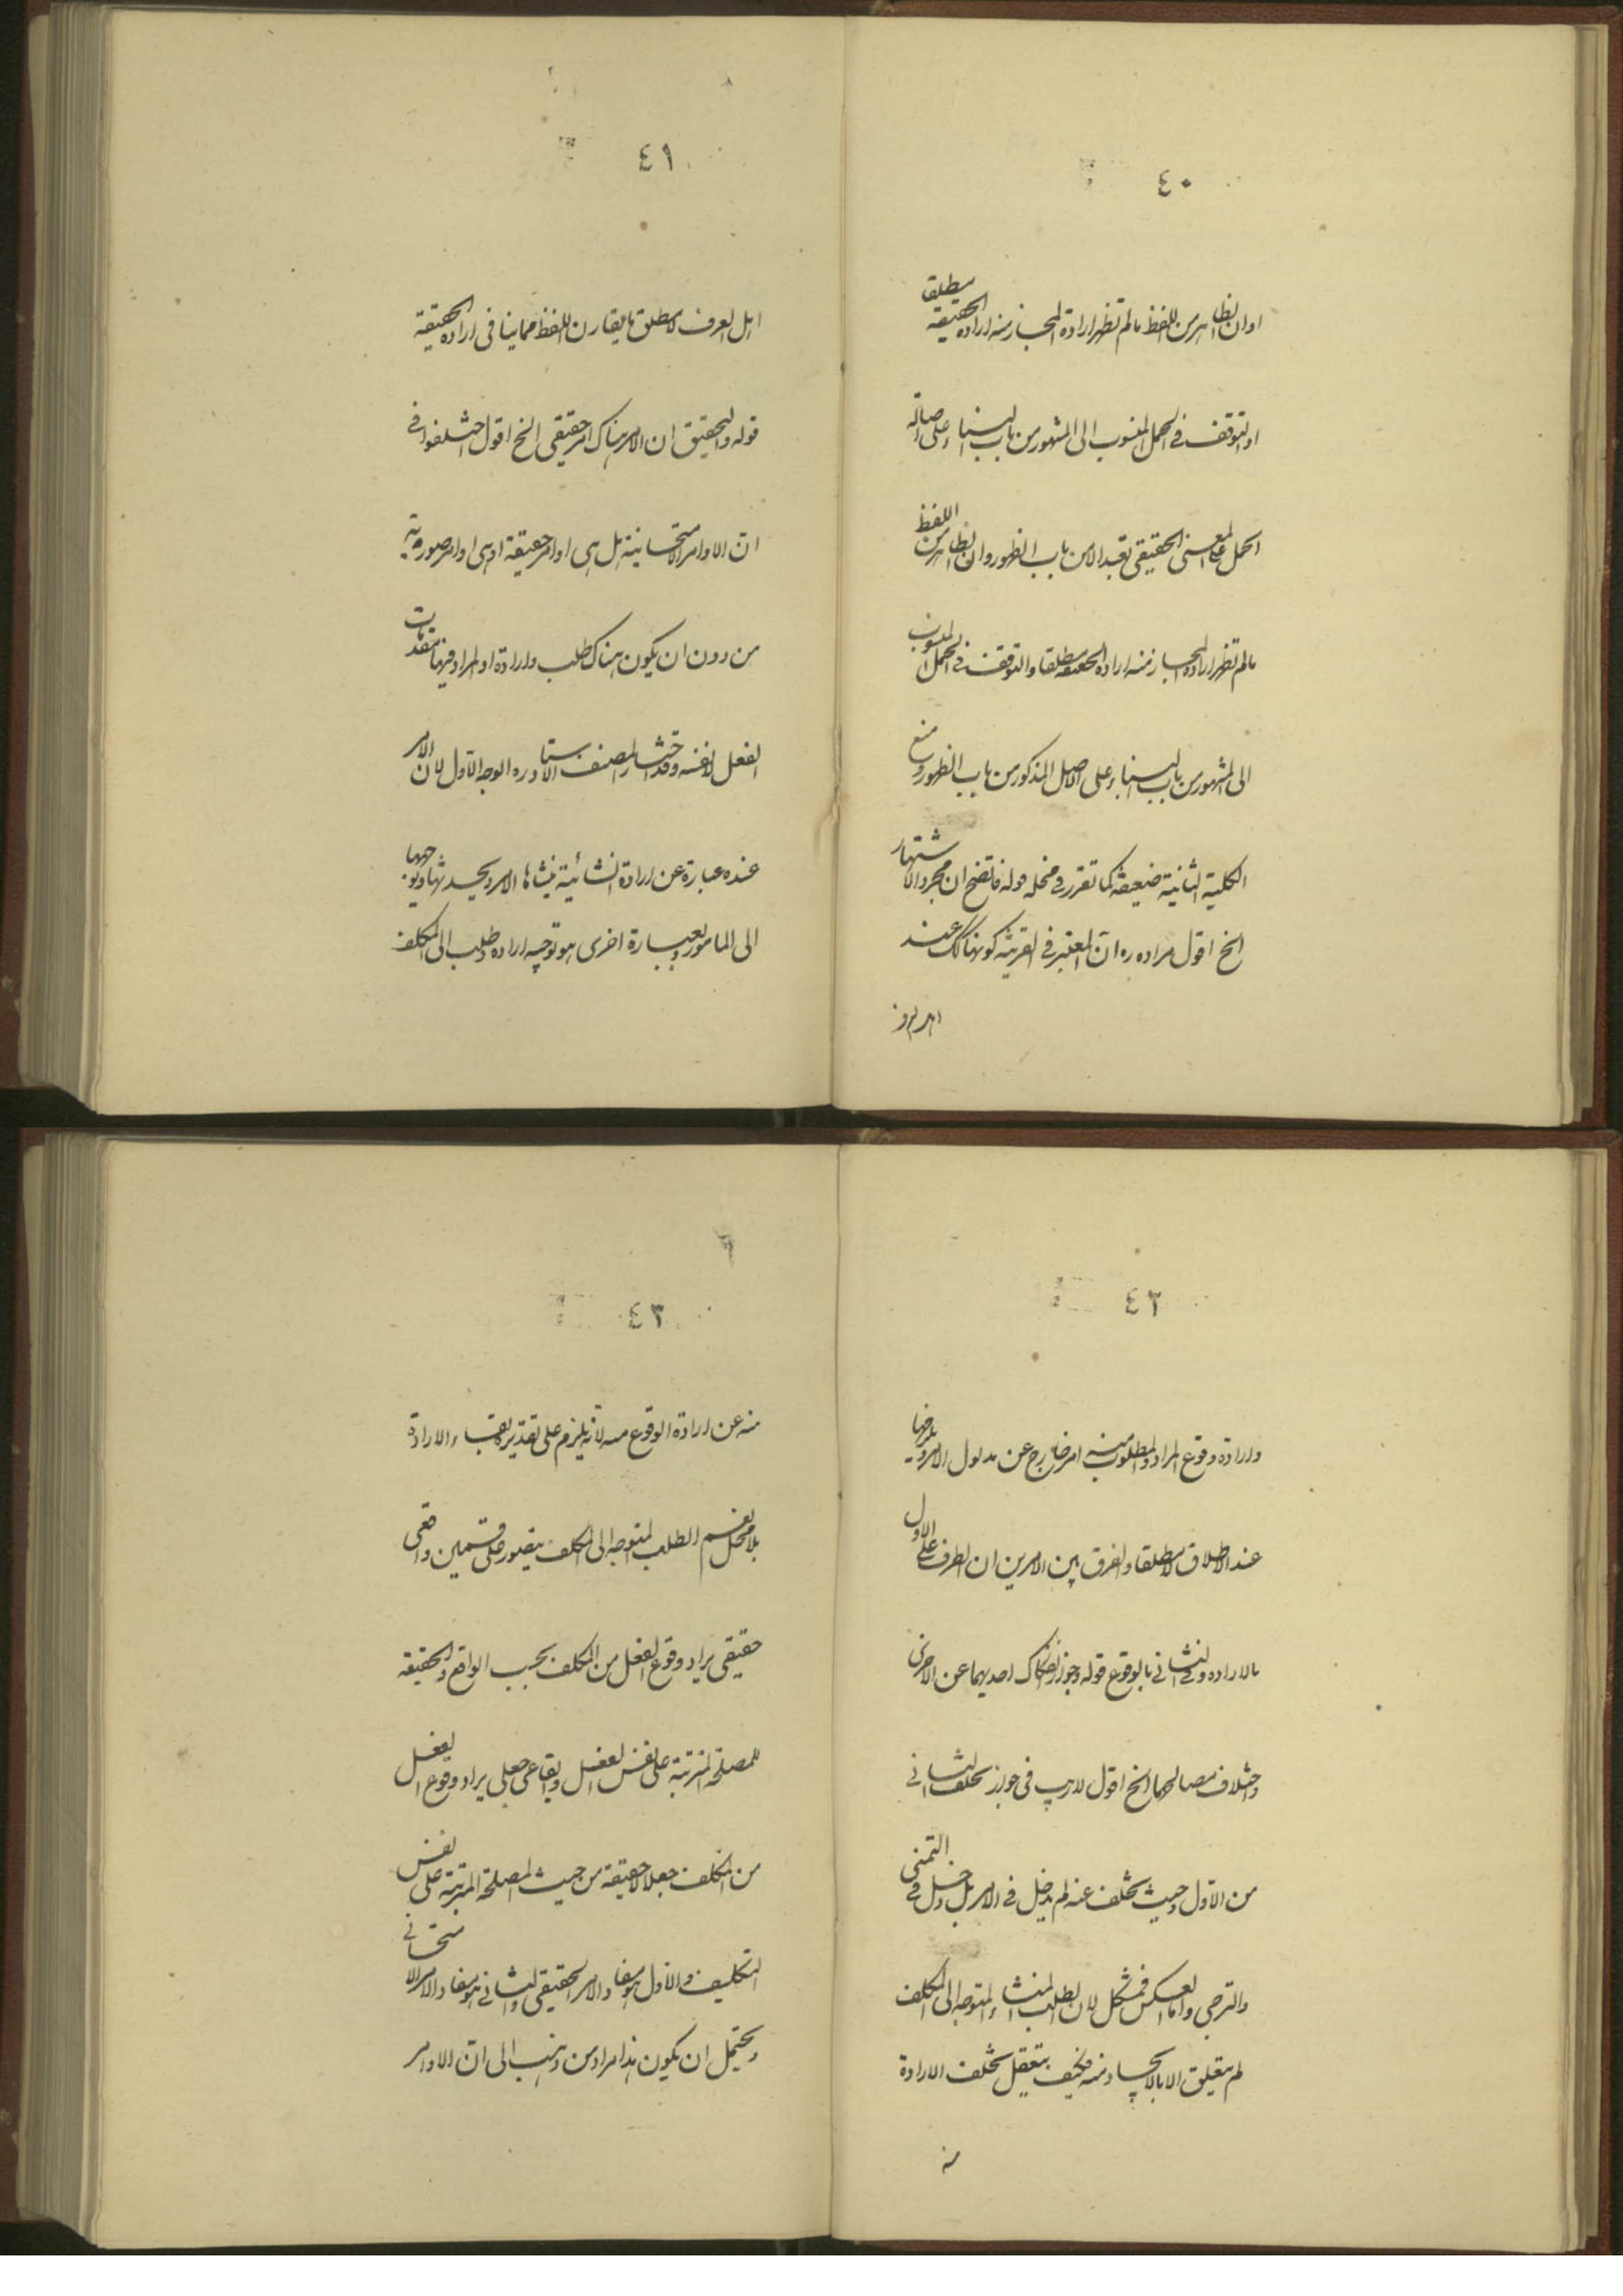 ٤٠
او ان الظاهر من اللفظ ما لم تظهر ارادة المجاز منه ارادة الحقيقة مطلقا
او التوقف في الحمل المنسوب الى المشهور من باب البناء على اصالة
الحمل على المعنى الحقيقي تعبدا لا من باب الظهور وان الظاهر من اللفظ
ما لم تظهر ارادة المجاز منه ارادة الحقيقة مطلقا والتوقف في الحمل المنسوب
الى المشهور من باب البناء على الاصل المذكور من باب الظهور ومنع
الكلية الثانية ضعيفة كما تقرر في محله قوله فاتضح ان مجرد الاشتهار
الخ اقول مراده ره ان المعتبر في القرينة كونها كك عند
اهل العرف
٤١
اهل العرف لا مطلق ما يقارن اللفظ مما ينافي ارادة الحقيقة
قوله والتحقيق ان الامر هناك امر حقيقي الخ اقول اختلفوا في
ان الاوامر الامتحانية هل هي اوامر حقيقة او هي اوامر صورية
من دون ان يكون هناك طلب وارادة او المراد فيها مقدمات
الفعل لا نفسه وقد اختار المصنف الاستاد ره الوجه الاول لان الامر
عنده عبارة عن ارادة انشائية ينشاها الامر ويحدثها ويوجهها
الى المامور وبعبارة اخرى هو توجيه ارادة وطلب الى المكلف
٤٢
وارادة وقوع المراد والمطلوب منه امر خارج عن مدلول الامر ويلزمها
عند الاطلاق لا مطلقا والفرق بين الامرين ان الظرف على الاول
بالارادة وفي الثاني بالوقوع قوله وجواز انفكاك احديهما عن الاخرى
واختلاف مصالحهما الخ اقول لا ريب في جواز تخلف الثاني
من الاول وحيث تخلف عنه لم يدخل في الامر بل دخل في التمني
والترجي واما العكس فمشكل لان الطلب المنشاء والمتوجه الى المكلف
لم يتعلق الا بالايجاد منه فكيف يتعقل تخلف الارادة
منه
٤٣
منه عن ارادة الوقوع منه لانه يلزم على تقديره بقاء الارادة
بلا محل نعم الطلب المتوجه الى المكلف يتصور على قسمين واقعي
حقيقي يراد وقوع الفعل من المكلف بحسب الواقع والحقيقة
للمصلحة المترتبة على نفس الفعل وايقاعي جعلي يراد وقوع الفعل
من المكلف جعلا لا حقيقة من حيث المصلحة المترتبة على نفس
التكليف والاول هو مفاد الامر الحقيقي والثاني هو مفاد الامر الامتحاني
ويحتمل ان يكون هذا مراد من ذهب الى ان الاوامر